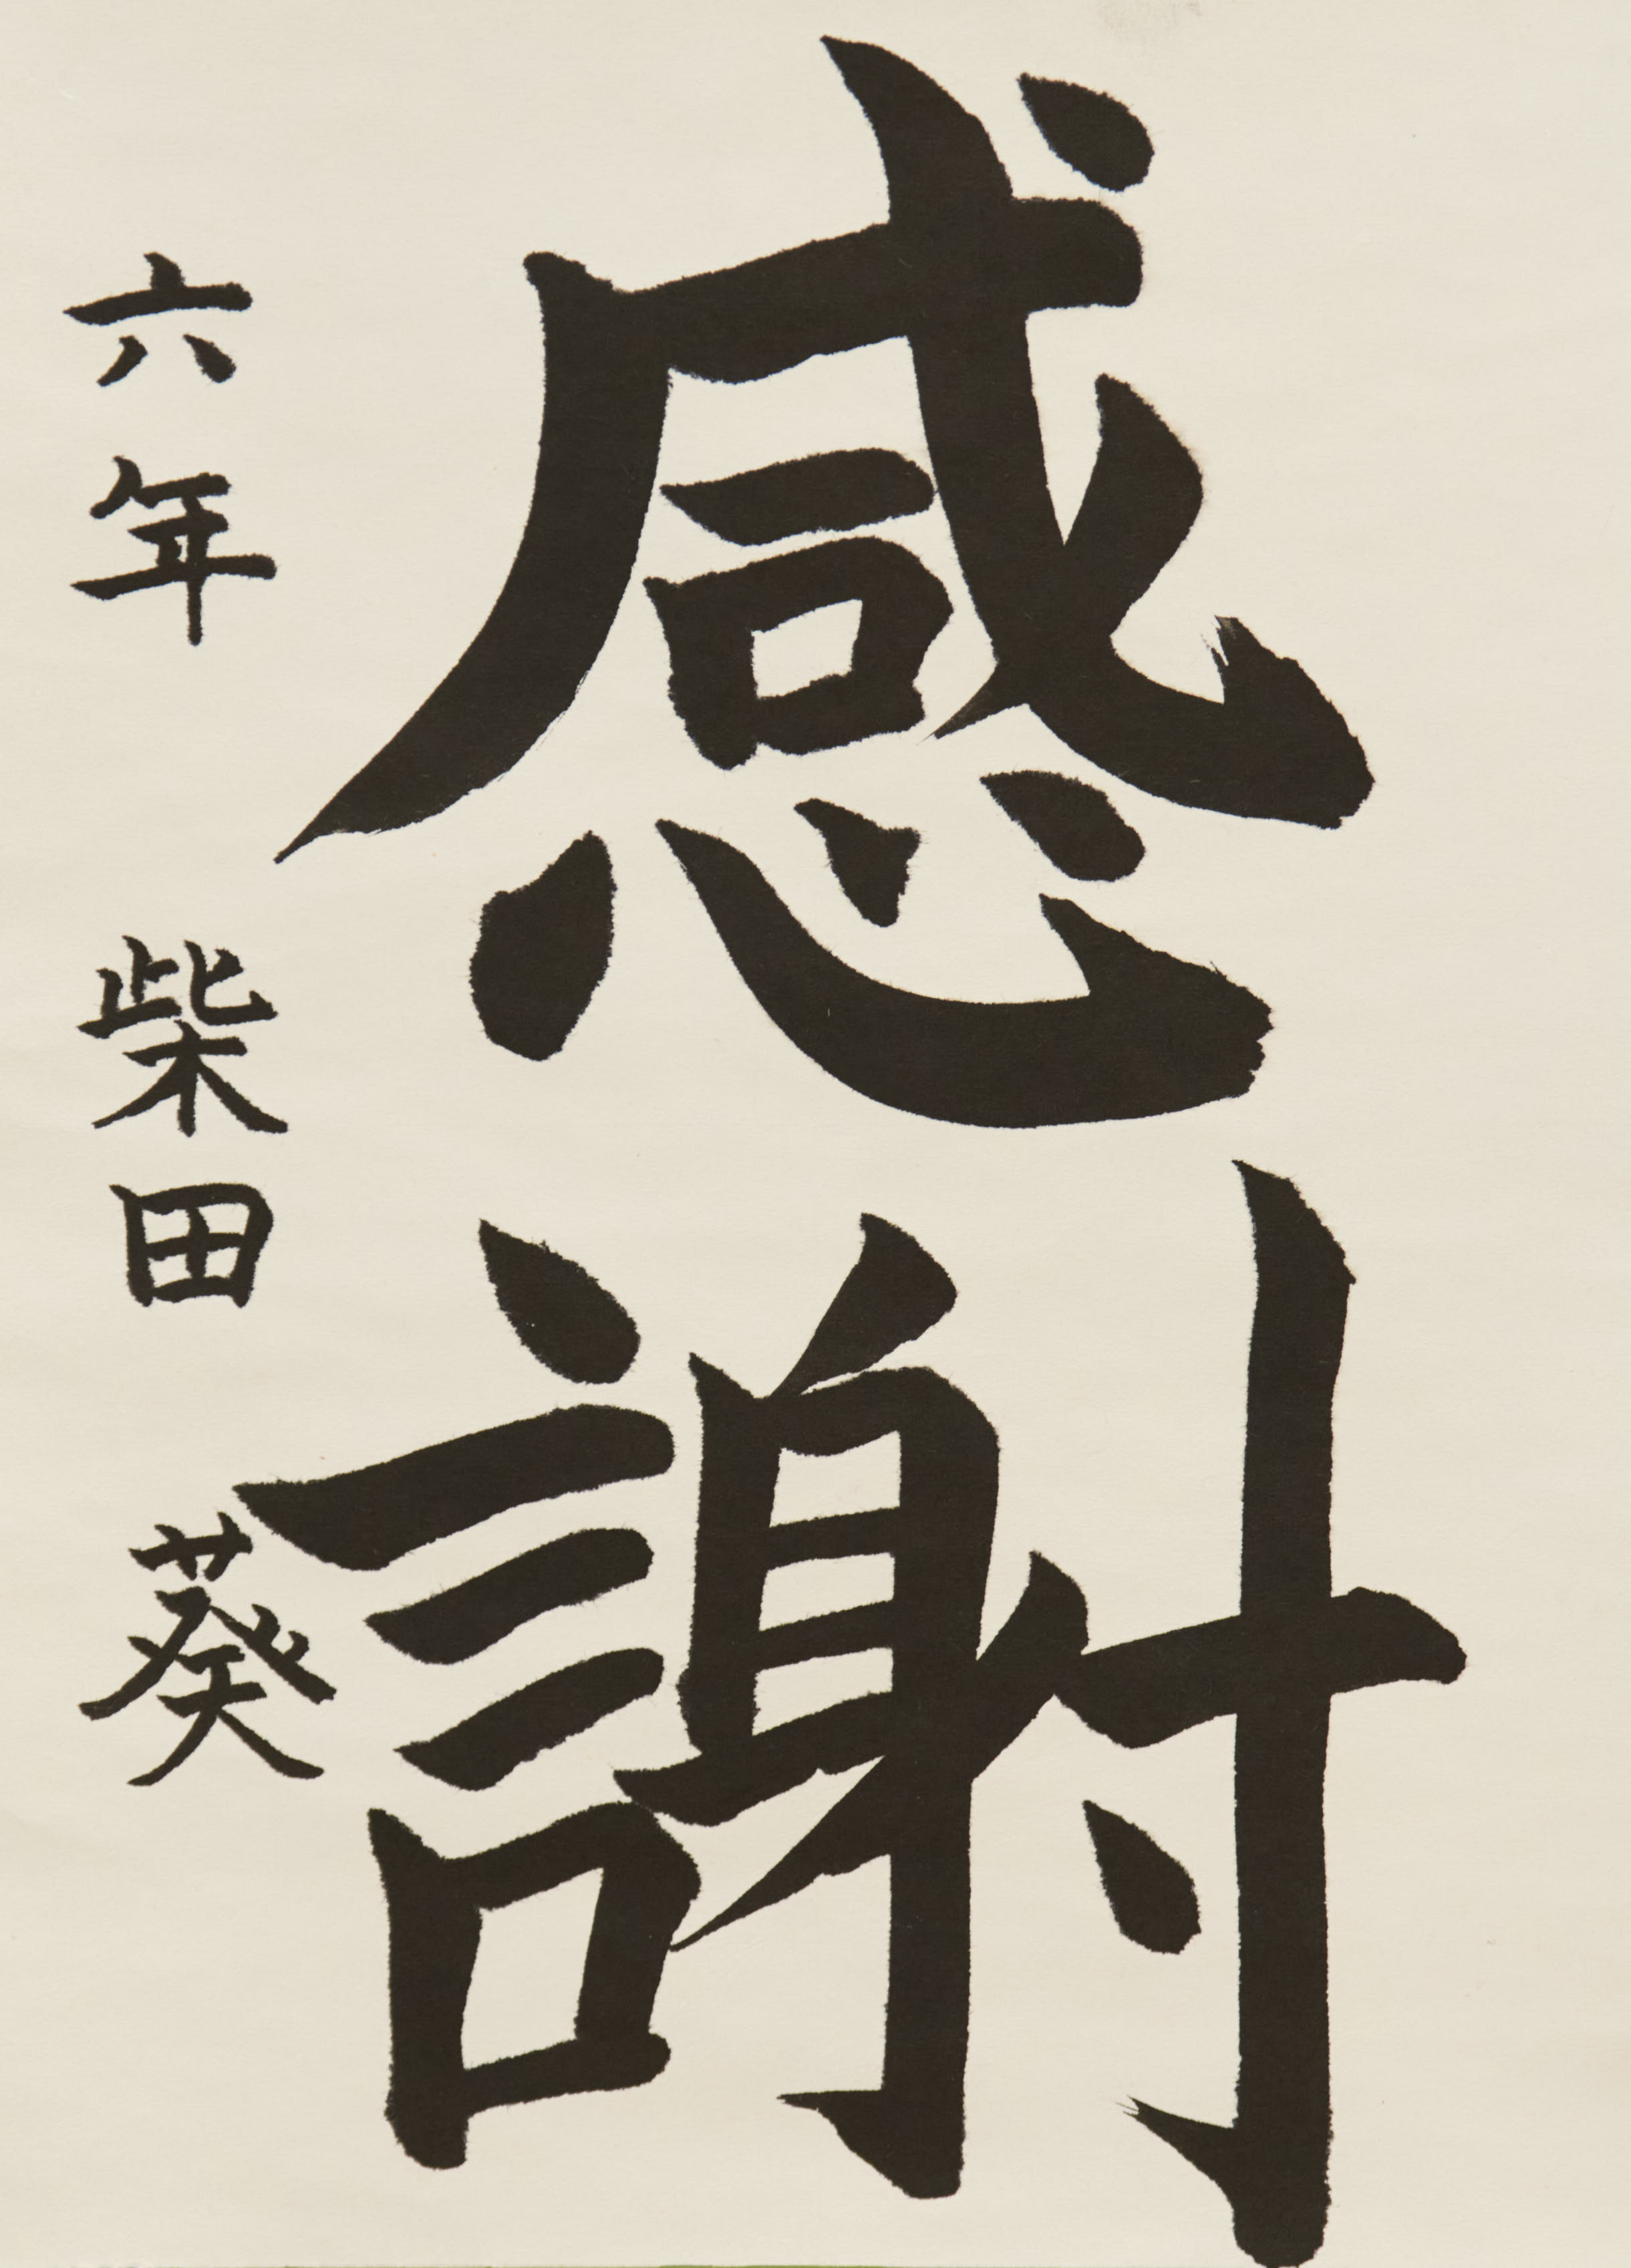 感謝
六年 柴田 葵